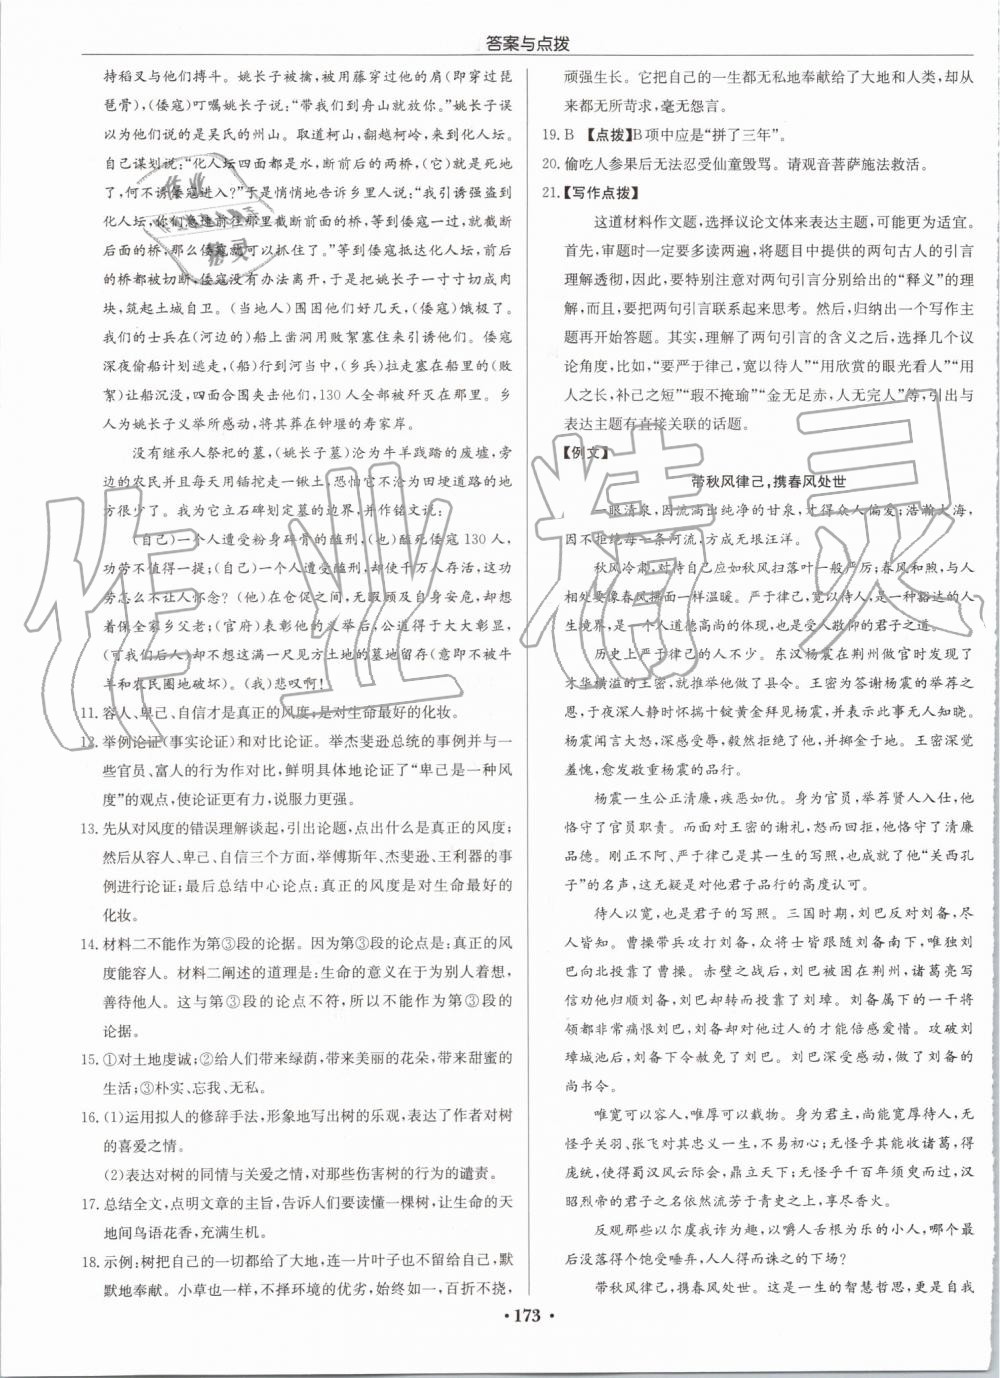 答案与点拨
持稻叉与他们搏斗。姚长子被擒,被用藤穿过他的肩(即穿过琵
琶骨),(倭寇)叮嘱姚长子说:“带我们到舟山就放你。”姚长子误
以为他们说的是吴氏的州山。取道柯山,翻越柯岭,来到化人坛。
自己谋划说:“化人坛四面都是水,断前后的两桥,(它)就是死地了,
何不诱倭寇进入?”于是悄悄地告诉乡里人说:“我引诱强盗到
化人坛,你们急速前往截断前面的桥,等到倭寇一过,就断掉后
面的桥,那么倭寇就可以擒住了。”等到倭寇抵达化人坛,前后
的桥都被切断,倭寇没有办法离开,于是把姚长子一寸寸切成肉
块,筑起土城自卫。(当地人)围困他们好几天,(倭寇)饿极了。
我们的士兵在(河边的)船上凿洞用败絮塞住来引诱他们。倭寇
深夜偷船计划逃走,(船)行到河中,(乡兵)拉走在船里的(败
絮)让船沉没,四面合围夹击他们,130人全部被歼灭在那里。乡
人为姚长子义举所感动,将其葬在钟堰的寿家岸。
没有继承人祭祀的墓,(姚长子墓)沦为牛羊践踏的废墟,旁
边的农民每天用锸挖走一锹土,恐怕它不沦为田埂道路的地步
没多久了。我为它立石碑划定墓的边界,并作铭文说:
(自己)一个人遭受粉身碎骨的醢刑,(也)醢死倭寇130人,
功劳不值得一提;(自己)一个人遭受醢刑,却使千万人存活,这功
劳怎么不让人怀念?(他)在仓促之间,无暇顾及自身安危,却想
着保全家乡父老;(官府)表彰他的义举后,公道得于大大彰显,
(可我们后人)却舍不得一抔五六尺见方土地的墓地留存(意即不被牛
羊和农民圈地破坏)。(我)悲叹啊!
11. 容人、卑己、自信才是真正的风度;是对生命最好的化妆。
12. 举例论证(事实论证)和对比论证。举杰斐逊总统的事例并与一
些官员、富人的行为作对比,鲜明具体地论证了“卑己是一种风
度”的观点,使论证更有力,说服力更强。
13. 先从对风度的错误理解谈起,引出论题,点出什么是真正的风度;
然后从容人、卑己、自信三个方面,举傅斯年、杰斐逊、王利器的事
例进行论证;最后总结中心论点:真正的风度是对生命最好的
化妆。
14. 材料二不能作为第③段的论据。因为第③段的论点是:真正的风
度能容人。材料二阐述的道理是:生命的意义在于为别人着想,
善待他人。这与第③段的论点不符,所以不能作为第③段的
论据。
15. ①对土地虔诚;②给人们带来绿荫,带来美丽的花朵,带来甜蜜的
生活;③朴实、忘我、无私。
16. (1)运用拟人的修辞手法,形象地写出树的乐观,表达了作者对树
的喜爱之情。
(2)表达对树的同情与关爱之情,对那些伤害树的行为的谴责。
17. 总结全文,点明文章的主旨,告诉人们要读懂一棵树,让生命的天
地间鸟语花香,充满生机。
18. 示例:树把自己的一切都给了大地,连一片叶子也不例外,默
默地奉献。小草也一样,不择环境的优劣,始终如一,百折不挠,
顽强生长。它把自己的一生都无私地奉献给了大地和人类,却从
来都无所苛求,毫无怨言。
19. B 【点拨】B项中应是“拼了三年”。
20. 偷吃人参果后无法忍受仙童毁骂。请观音菩萨施法救活。
21. 【写作点拨】
这道材料作文题,选择议论文体来表达主题,可能更为适宜。
首先,审题时一定要多读两遍,将题目中提供的两句古人的引言
理解透彻,因此,要特别注意对两句引言分别给出的“释义”的理
解,而且,要把两句引言联系起来思考。然后,归纳出一个写作主
题再开始答题。其实,理解了两句引言的含义之后,选择几个议
论角度,比如,“要严于律己,宽以待人”“用欣赏的眼光看人”“用
人之长,补己之短”“瑕不掩瑜”“金无足赤,人无完人”等,引出与
表达主题有直接关联的话题。
【例文】
带秋风律己,携春风处世
一眼清泉,因流淌出纯净的甘泉,才得众人偏爱;浩瀚大海,
因不拒绝每一条河流,方成无垠汪洋。
秋风冷肃,对待自己应如秋风扫落叶一般严厉;春风和煦,与人
相处要像春风拂面一样温暖。严于律己,宽以待人,是一种豁达的人
生境界,是一个人道德高尚的体现,也是受人敬仰的君子之道。
历史上严于律己的人不少。东汉杨震在荆州做官时发现了
才华横溢的王密,就推举他做了县令。王密为答谢杨震的举荐之
恩,于夜深人静时怀揣十锭黄金拜见杨震,并表示此事无人知晓。
杨震闻言大怒,深感受辱,毅然拒绝了他,并掷金于地。王密深觉
羞愧,愈发敬重杨震的品行。
杨震一生公正清廉,疾恶如仇。身为官员,举荐贤人入仕,他
恪守了官员职责。而面对王密的谢礼,怒而回拒,他恪守了清廉
品德。刚正不阿、严于律己是他一生的写照,也成就了他“关西孔
子”的名声,这无疑是对他君子品行的高度认可。
待人以宽,也是君子的写照。三国时期,刘巴反对刘备,尽
人皆知。曹操带兵攻打刘备,众将士皆跟随刘备南下,唯独刘
巴转而投靠了曹操。赤壁之战后,刘巴被困在荆州,诸葛亮写
信劝他归顺刘备,刘巴却转而投靠了刘璋。刘备属下的一干将
领都非常痛恨刘巴,刘备却对他过人的才能倍感爱惜。攻破刘
璋城池后,刘备下令赦免了刘巴。刘巴深受感动,做了刘备的
尚书令。
唯宽可以容人,唯厚可以载物。身为君主,尚能宽厚待人,无
怪乎关羽、张飞对其忠义一生,不易初心;无怪乎其能收诸葛,得
庞统,使得蜀汉风云际会,鼎立天下;无怪乎千百年须臾而过,汉
昭烈帝的君子之名依然流芳于青史之上,享尽香火。
反观那些以尔虞我诈为趣,以嚼人舌根为乐的小人,哪个最
后不是落得个饱受唾弃,人人得而诛之的下场?
带秋风律己,携春风处世。这是一生的智慧哲思,更是自我
·173·
作业精灵
作业精灵